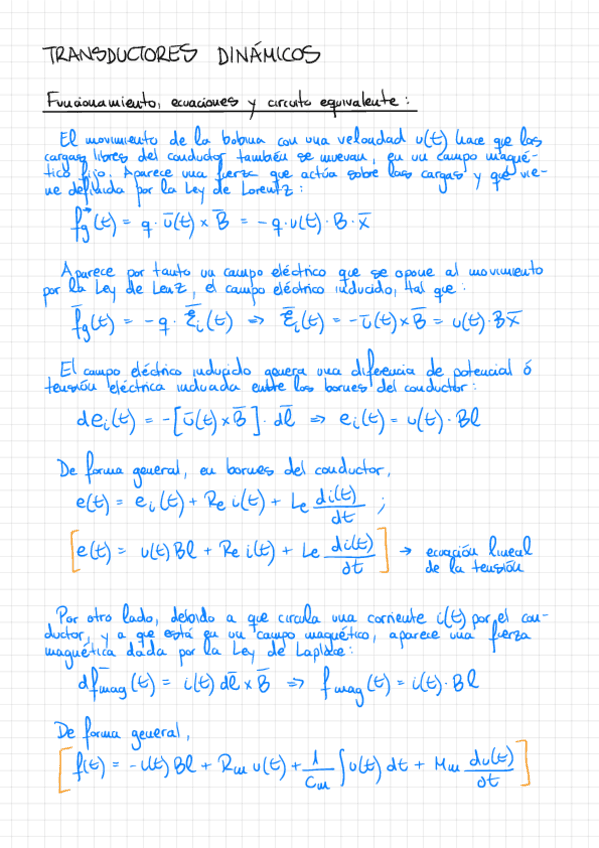 TRANSDUCTORES DINÁMICOS
Funcionamiento, ecuaciones y circuito equivalente:
El movimiento de la bobina con una velocidad u(t) hace que las
cargas libres del conductor también se muevan, en un campo magné-
tico fijo. Aparece una fuerza que actúa sobre las cargas y que vie-
ne definida por la Ley de Lorentz:
f̄g(t) = q · ū(t) × B̄ = - q · u(t) · B · x̄
Aparece por tanto un campo eléctrico que se opone al movimiento
por la Ley de Lenz, el campo eléctrico inducido, tal que:
f̄g(t) = - q · Ēi(t) ⇒ Ēi(t) = - ū(t) × B̄ = u(t) · B x̄
El campo eléctrico inducido genera una diferencia de potencial ó
tensión eléctrica inducida entre los bornes del conductor:
dei(t) = - [ū(t) × B̄] · dl̄ ⇒ ei(t) = u(t) · Bl
De forma general, en bornes del conductor,
e(t) = ei(t) + Re i(t) + Le di(t)/dt ;
[e(t) = u(t) Bl + Re i(t) + Le di(t)/dt] → ecuación lineal
de la tensión
Por otro lado, debido a que circula una corriente i(t) por el con-
ductor, y a que está en un campo magnético, aparece una fuerza
magnética dada por la Ley de Laplace:
df̄mag(t) = i(t) dl̄ × B̄ ⇒ fmag(t) = i(t) · Bl
De forma general,
[f(t) = - i(t) Bl + Rm u(t) + 1/Cm ∫u(t) dt + Mm du(t)/dt]